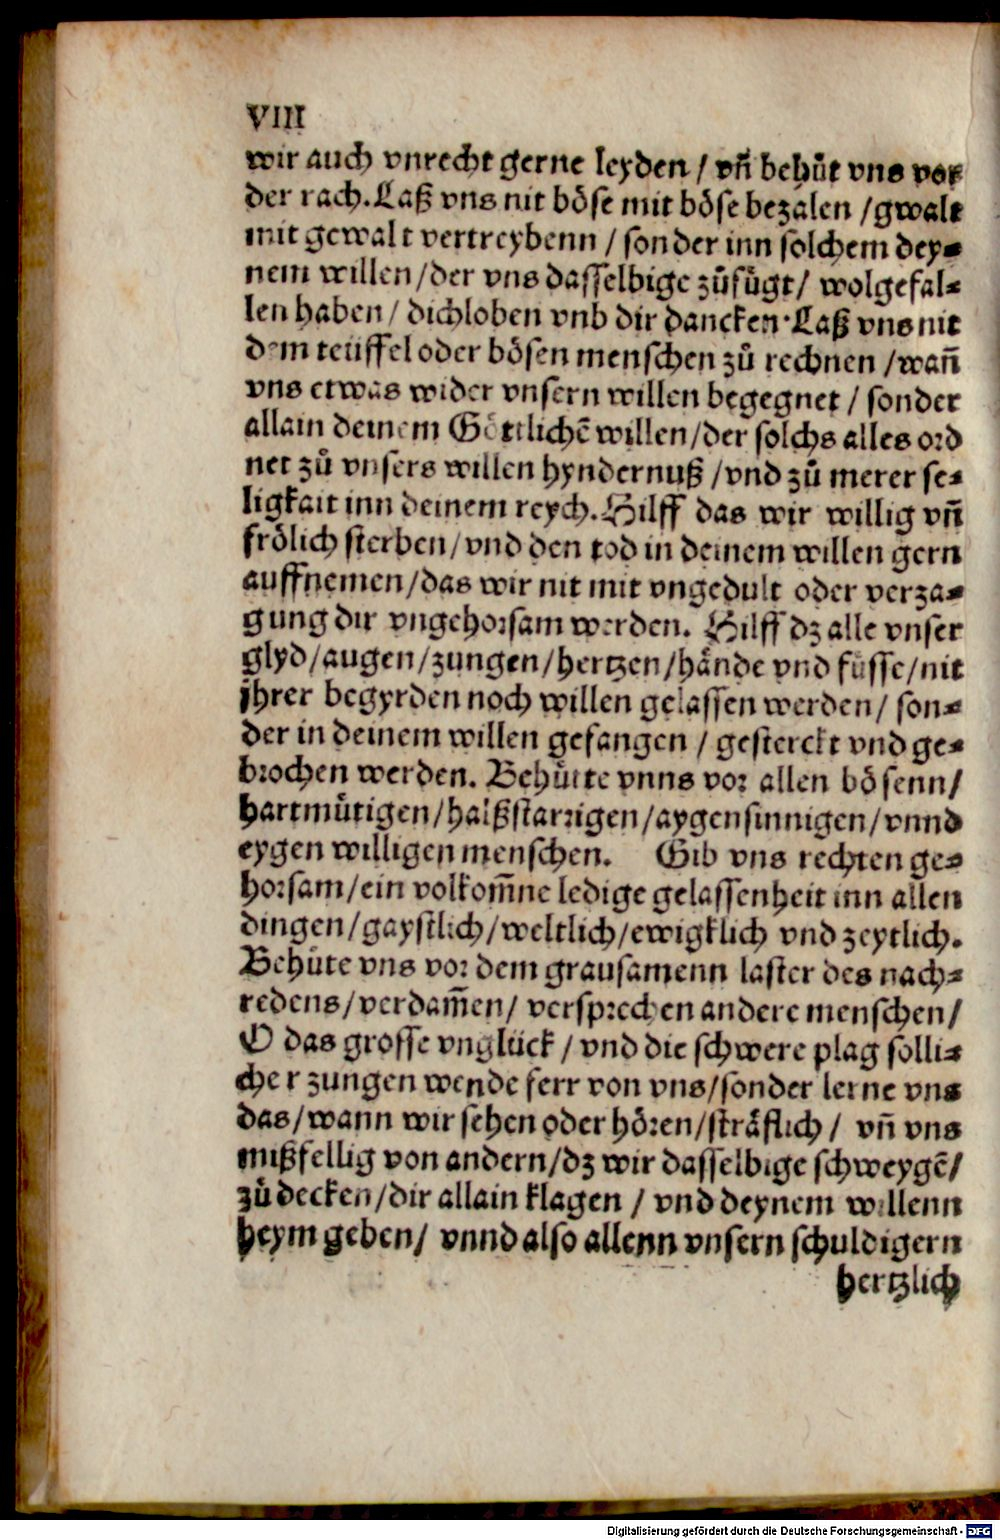 VIII
wir auch vnrecht gerne leyden / vn̄ behuͤt vns vor
der rach. Laß vns nit boͤse mit boͤse bezalen / gwalt
mit gewalt vertreybenn / sonder inn solchem dey⸗
nem willen / der vns dasselbige zuͦfuͤgt / wolgefal⸗
len haben / dich loben vnb dir dancken. Laß vns nit
dem teuffel oder boͤsen menschen zuͦ rechnen / wan̄
vns etwas wider vnsern willen begegnet / sonder
allain deinem Goͤttlichē willen / der solchs alles ord
net zuͦ vnsers willen hyndernuß / vnd zuͦ merer se⸗
ligkait inn deinem reych. Hilff das wir willig vn̄
froͤlich sterben / vnd den tod in deinem willen gern
auffnemen / das wir nit mit vngedult oder verza⸗
gung dir vngehorsam werden. Hilff dz alle vnser
glyd / augen / zungen / hertzen / haͤnde vnd fuͤsse / nit
jhrer begyrden noch willen gelassen werden / son⸗
der in deinem willen gefangen / gesterckt vnd ge⸗
brochen werden. Behuͤtte vnns vor allen boͤsenn /
hartmuͤtigen / halßstarrigen / aygensinnigen / vnnd
eygen willigen menschen. Gib vns rechten ge⸗
horsam / ein volkom̄ne ledige gelassenheit inn allen
dingen / gaystlich / weltlich / ewigklich vnd zeytlich.
Behuͤte vns vor dem grausamenn laster des nach⸗
redens / verdam̄en / versprechen andere menschen /
O das grosse vngluͤck / vnd die schwere plag solli⸗
cher zungen wende ferr von vns / sonder lerne vns
das / wann wir sehen oder hoͤren / straͤflich / vn̄ vns
mißfellig von andern / dz wir dasselbige schweygē /
zuͦ decken / dir allain klagen / vnd deynem willenn
heym geben / vnnd also allenn vnsern schuldigern
hertzlich
Digitalisierung gefördert durch die Deutsche Forschungsgemeinschaft - DFG